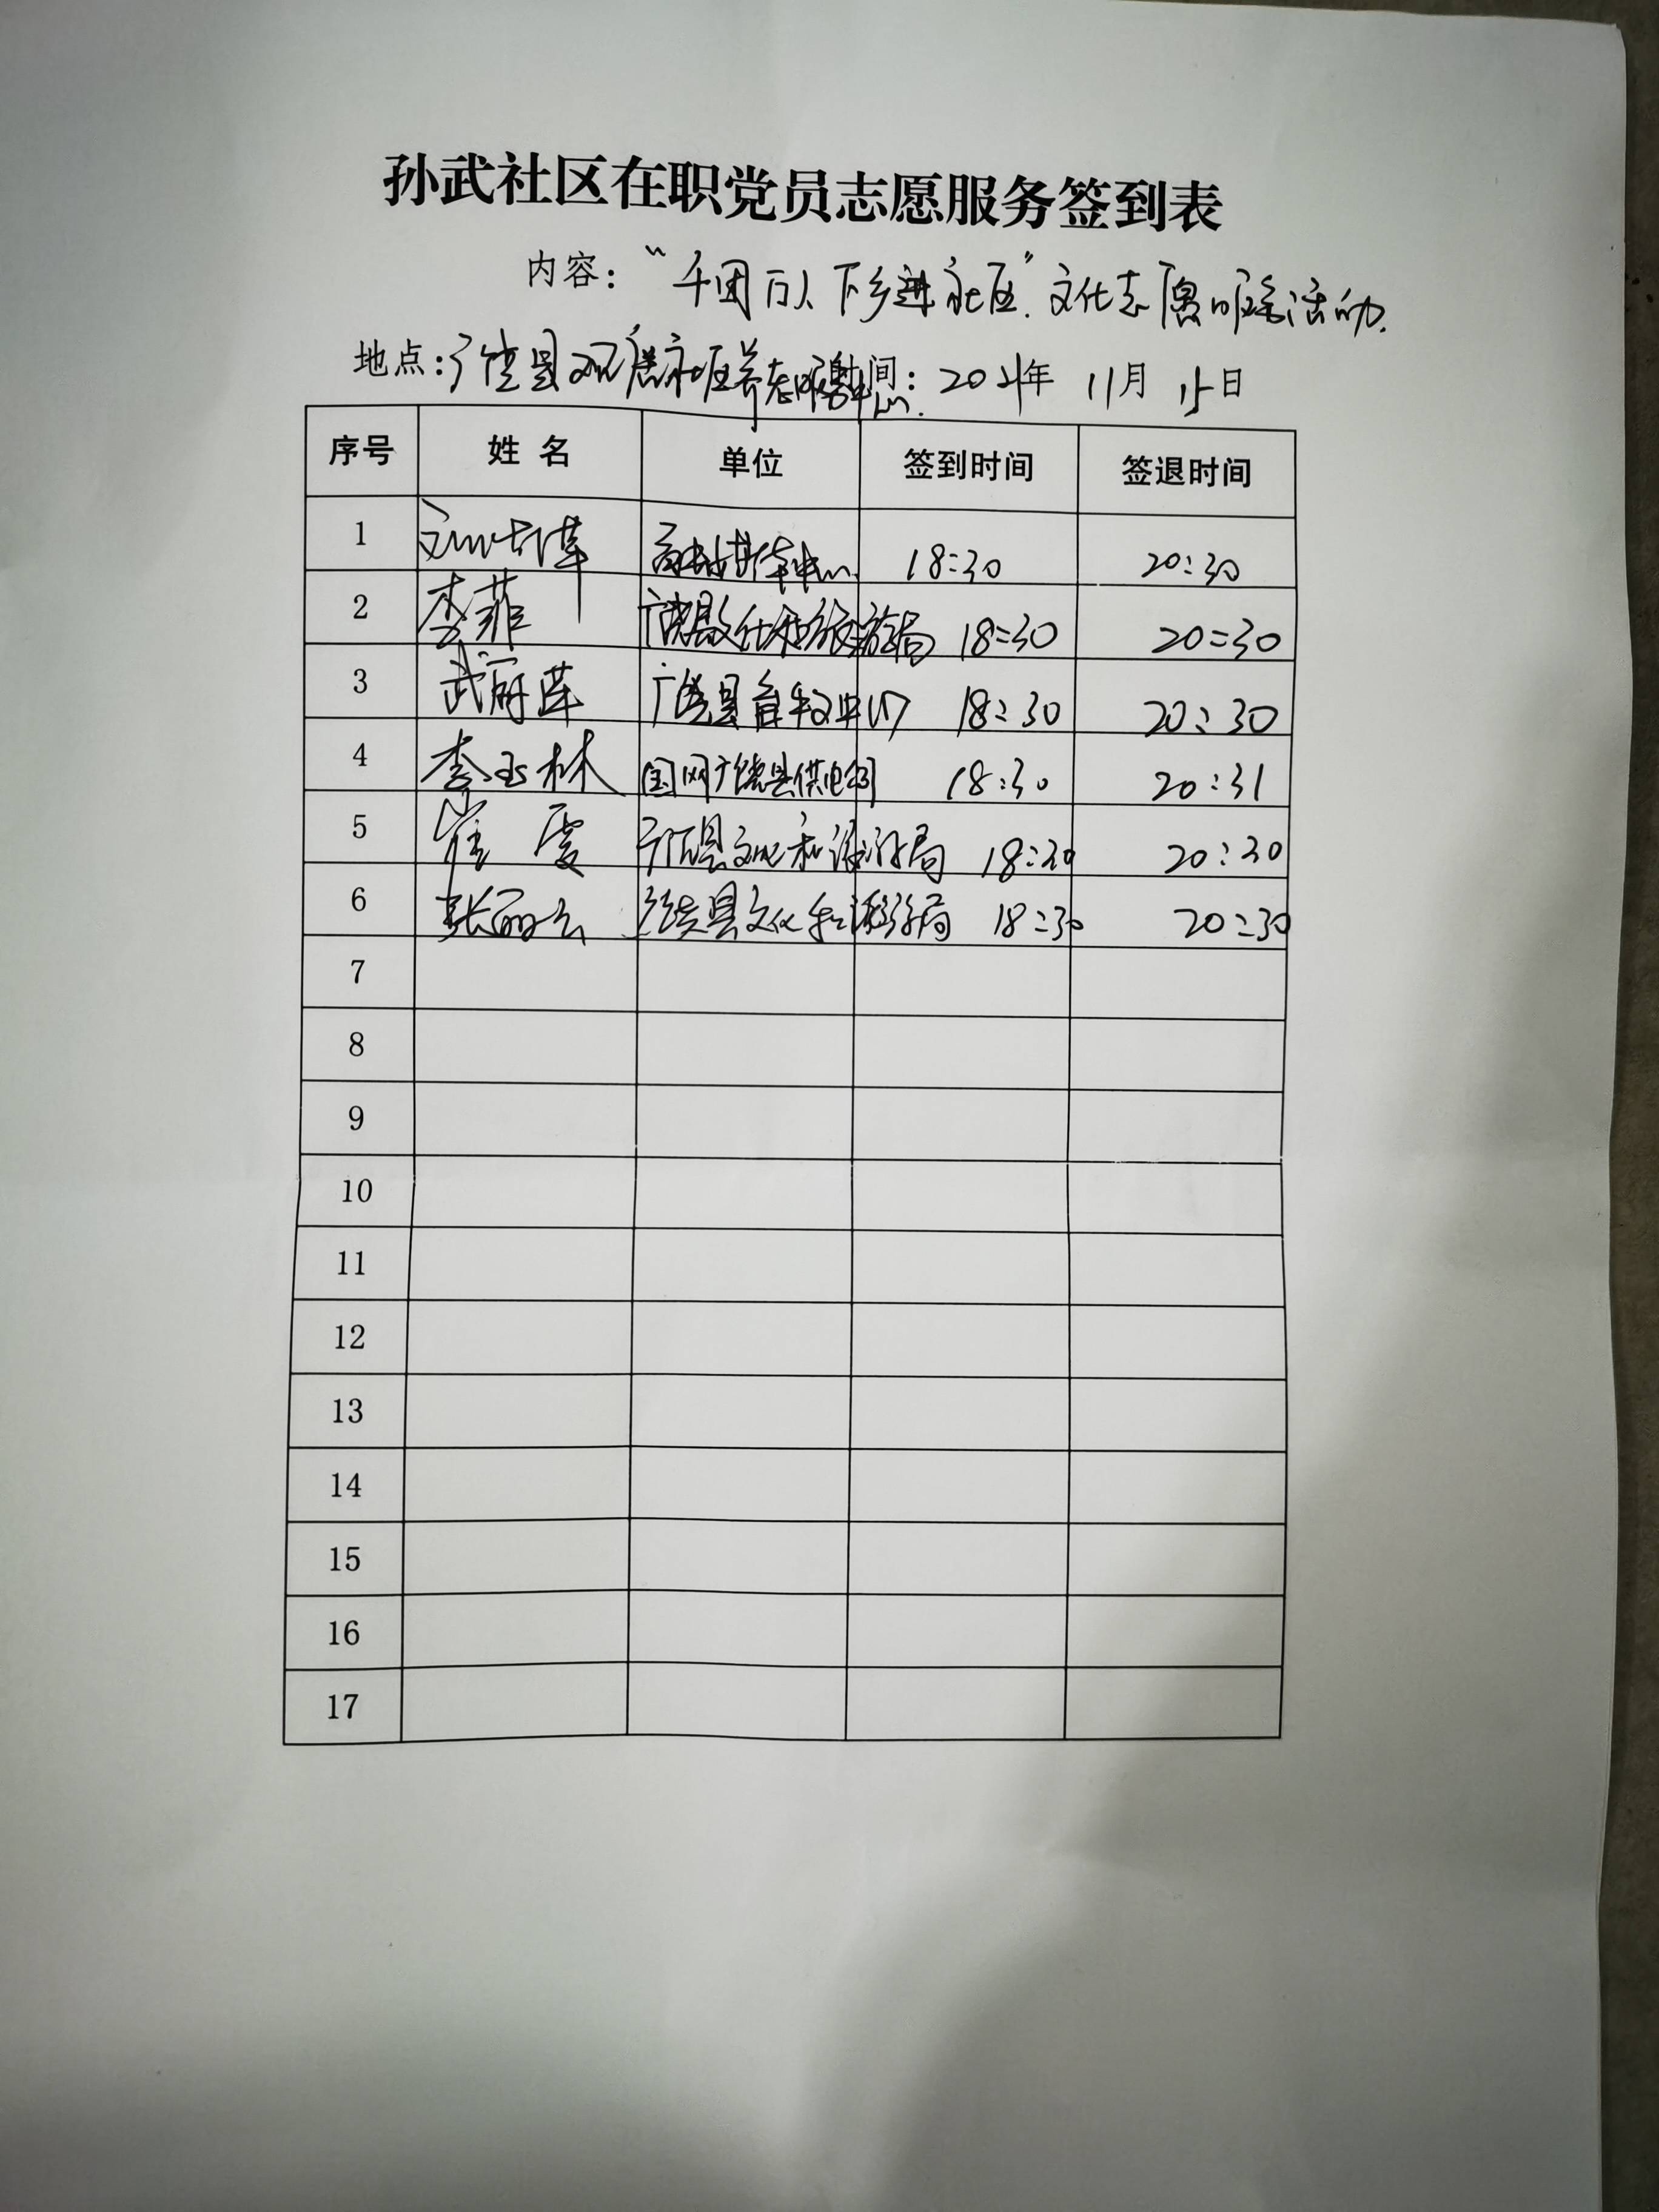 孙武社区在职党员志愿服务签到表
内容：“千团万人下乡进社区”文化志愿服务活动.
地点：广饶县 社区养老服务中心 时间：2021年 11月 15日
序号 姓名 单位 签到时间 签退时间
1 18:30 20:30
2 李菲 广饶县文化和旅游局 18:30 20:30
3 武蔚莲 广饶县 18:30 20:30
4 李玉林 国网广饶县供电公司 18:30 20:31
5 崔雯 广饶县文化和旅游局 18:30 20:30
6 张丽云 广饶县文化和旅游局 18:30 20:30
7
8
9
10
11
12
13
14
15
16
17